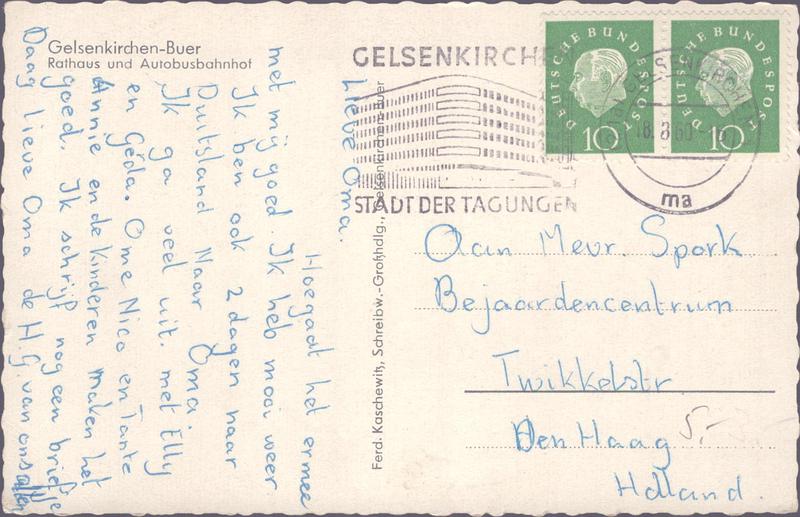 Gelsenkirchen-Buer
Rathaus und Autobusbahnhof
GELSENKIRCHE
STADT DER TAGUNGEN
DEUTSCHE BUNDESPOST
10
DEUTSCHE BUNDESPOST
10
18. 3. 60
ma
Ferd. Kaschewitz, Schreibw.-Großhdlg., Gelsenkirchen-Buer
Lieve Oma.
Hoegadt het ermee
met mij goed. Ik heb mooi weer
Ik ben ook 2 dagen naar
Duitsland Naar Oma
Ik ga veel uit. met Elly
en Géda. Ome Nico en Tante
Annie en de kinderen maken het
goed. Ik schrijf nog een briefje
Daag lieve Oma de H. G. van ons allen
Aan Mevr. Spork
Bejaardencentrum
Twikkelstr
Den Haag
5.-
Holland.